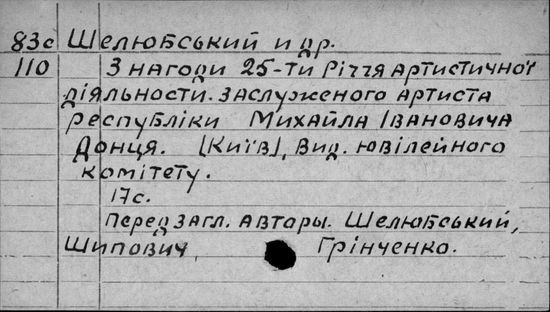 83с Шелюбський и др.
110 З нагоди 25-ти Річчя артистичної
діяльности. заслуженого артиста
республіки Михайла Івановича
Донця. [Київ], Вид. ювілейного
комітету.
17с.
перед загл. авторы. Шелюбський,
Шипович, Грінченко.